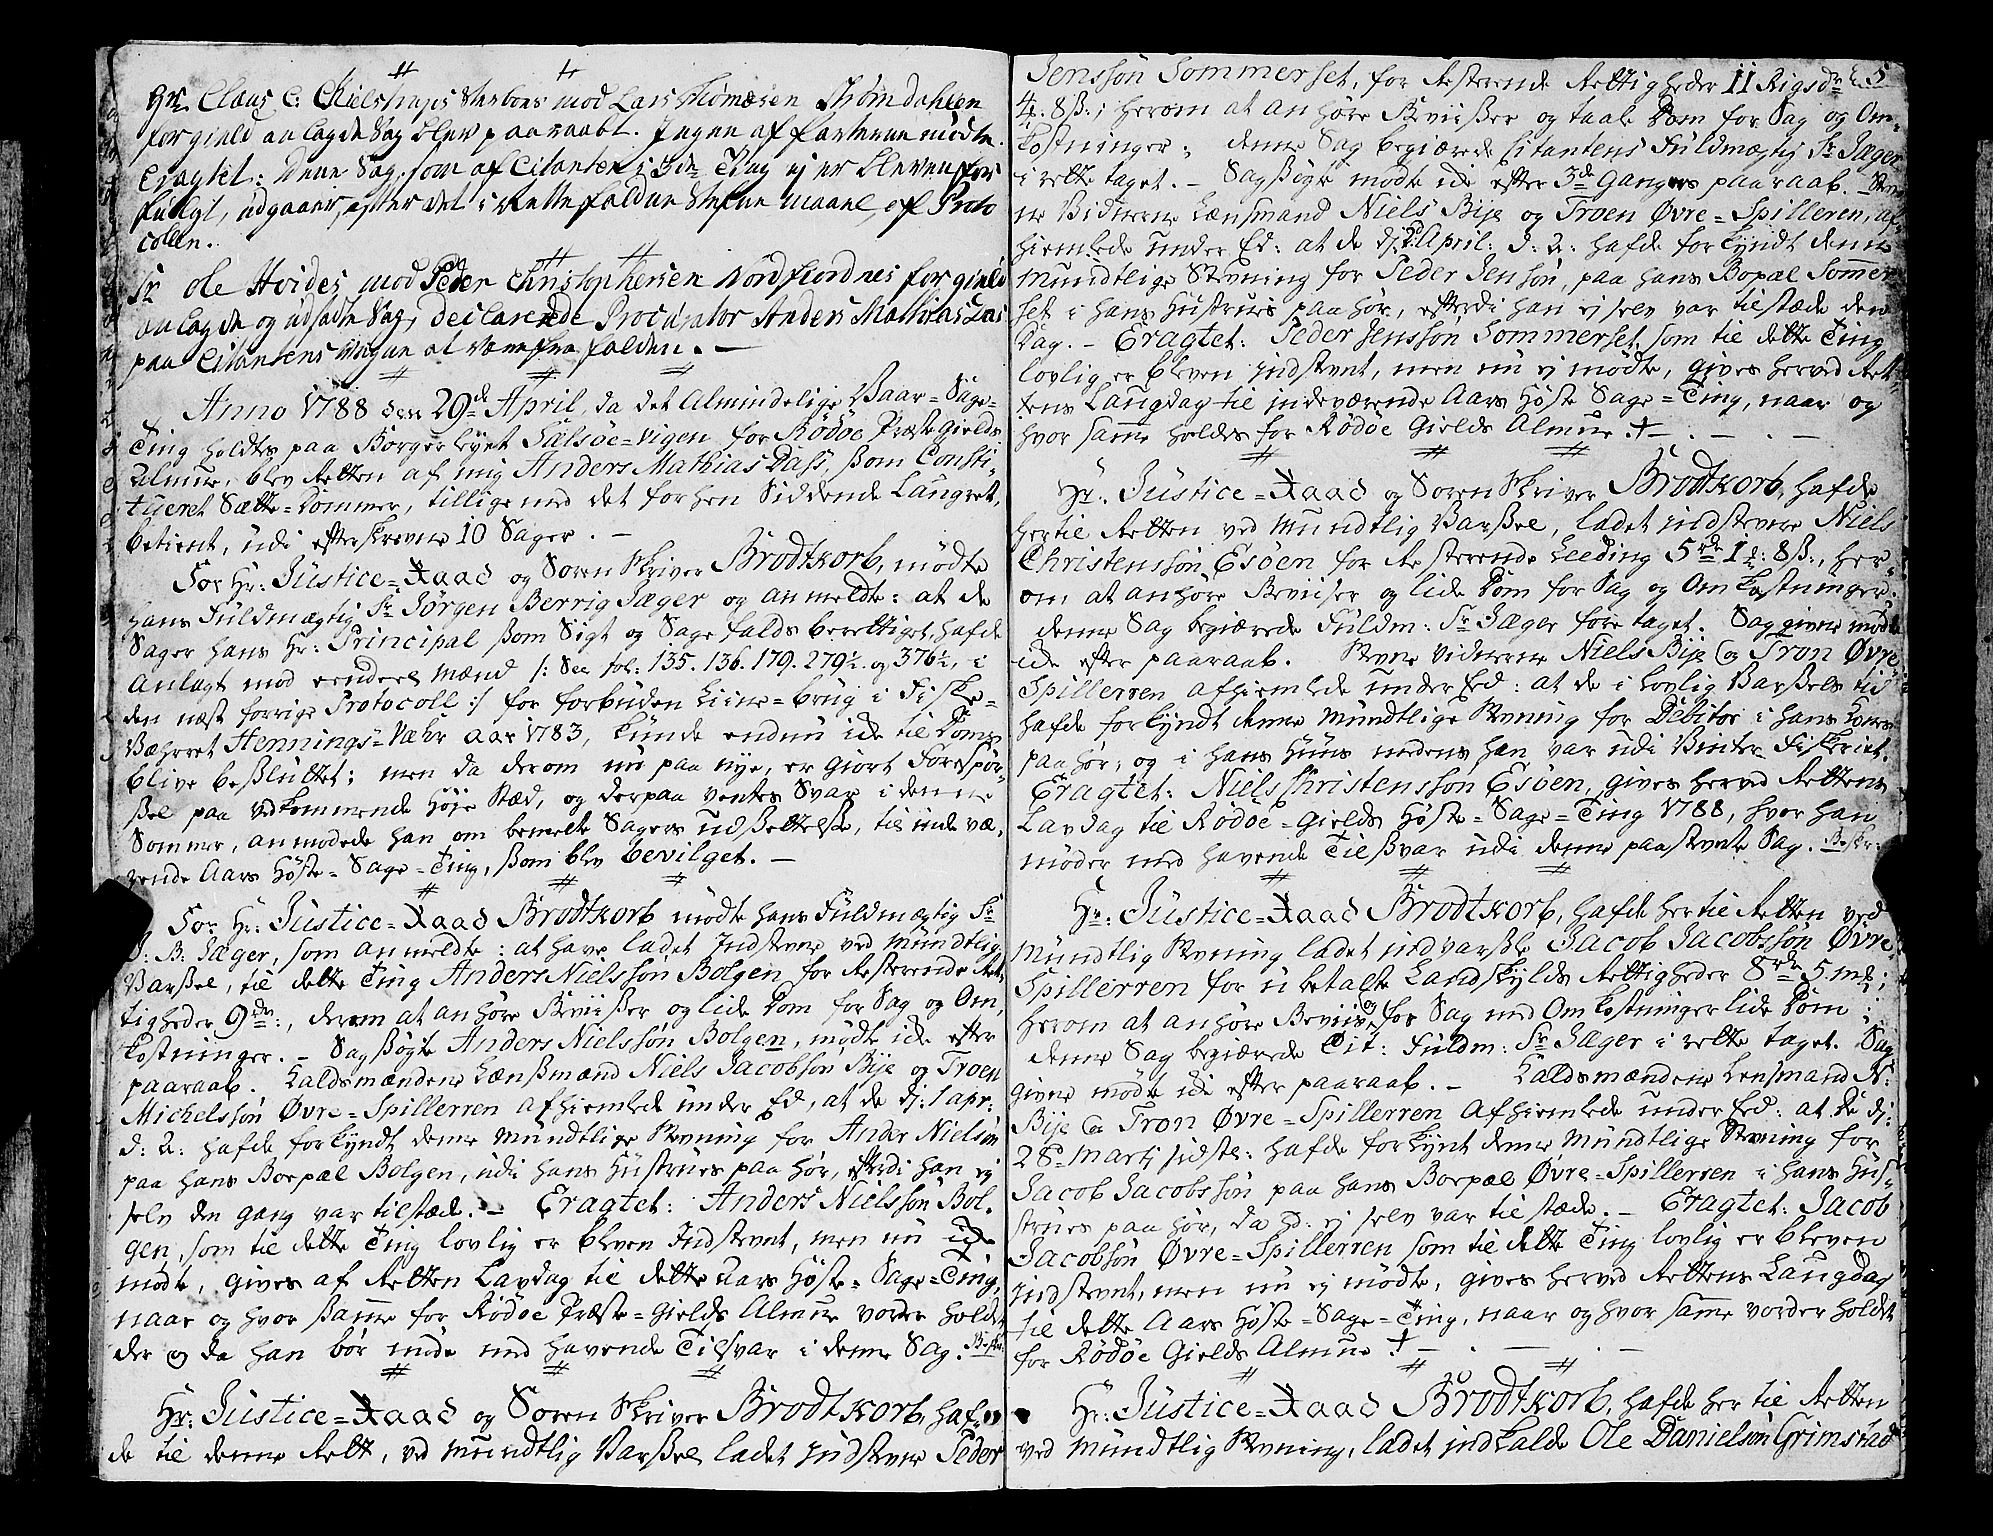 Hr. Claus C: Kielstrups Sterboes mod Lars Thomæsen Strømdahlen
for gield anlagde Sag blev paaraabt. Ingen af Parterne mødte.
Eragtet: Denne Sag, som af Citanten i 3de Ting ej er bleven for
fulgt, udgaaer, efter det i Rette faldne Stefne maal, af Proto
collen.
Sr. Ole Hvides mod Peder Christophersen Nordfiordnes for gield
anlagde og udsadte Sag, declarerede Procurator Anders Mathias Dass
paa Citantens Vegne at være frafalden. —
Anno 1788 den 29de April, da det Almindelige Vaar=Sage=
Ting holdtes paa Borgerlejet Sälsöe=Vigen for Rödöe Præste Gields
Almue, blev Retten af mig Anders Mathias Dass, som Consti,
tueret Sætte=Dommer, tillige med det forhen Siddende Laugret,
betient, udi efterskrevne 10 Sager. —
For Hr: Justice=Raad og Soren Skriver Brodtkorb, mødte
hans Fuldmægtig Sr Jørgen Berrig Jæger og anmeldte: at de
Sager hans Hr: Principal som Sigt og Sagefalds berettiget, hafde
anlagt mod eendeel mænd /: See fol: 135. 136. 179. 279½ og 376½, i
den næst forrige Protocoll :/ for forbuden Liine=brug i Fiske=
Væhrret Hennings=Væhr aar 1783, kunde endnu ide til Doms
blive besluttet; men da derom nu paa nye, er giort Forespör,
sel paa vedkommende Höje Stæd, og derpaa ventes Svar i denne
Sommer, anmodede han om bemelte Sagers udsettelse, til inde væ,
rende Aars Höste=Sage=Ting, som blev bevilget. —
For Hr: Justice=Raad Brodtkorb mødte hans Fuldmægtig Sr
J: B: Jæger, som anmeldte: at have ladet Indstevne ved Mundtlig
Varsel, til dette Ting Anders Nielssön Bolgen for Resterende Ret,
tigheder 9 rdr:, derom at anhöre Beviiser og lide Dom for Sag og Om,
kostninger. — Sagsögte Anders Nielssön Bolgen, mødte ide efter
paaraab. Kaldsmændene Lænsmand Niels Jacobsön Bije og Troen
Michelssön Øvre=Spillerren afhiemlede under Ed, at de dj: 1 apr:
d: 2: hafde forkyndt denne Mundtlige Stevning for Ander Nielsön
paa hans Boepæl Bolgen, udi hans Hustrues paahör, efterdi han ej
selv den gang var tilstæde. — Eragtet: Anders Nielssön Bol,
gen, som til dette Ting lovlig er bleven Indstevnt, men nu ide
mødte, gives af Retten Lavdag til dette Aars Höste=Sage=Ting,
naar og hvor samme for Rödöe Præste=Gields Almue vorder holdt
der og da han bör møde med havende Tilsvar i denne Sag.
Hr: Justice=Raad og Soren Skriver Brodtkorb, haf,
de til denne Rett, ved mundtlig Varsel ladet Indstevne Peder
5
Jenssön Sommerset, for Resterende Rettigheder 11 Rigsdr
4: 8ß:, herom at anhöre Beviiser og taale Dom for Sag og Om,
kostninger; denne Sag begiærede Citantens Fuldmægtig Sr Jæger
i rette taget. — Sagsögte mødte ide efter 3de Gangers paaraab. — Stev
ne Vidnerne Lænsmand Niels Bije og Troen Øvre=Spilleren, af,
hiemlede under Ed: at de dj: 2 April: d: 2: hafde forkyndt denne
Mundtlige Stevning for Peder Jensön, paa hans Bopæl Sommer
set i hans Hustrues paahör, efterdi han ej selv var tilstæde den
Dag. — Eragtet: Peder Jenssön Sommerset, som til dette Ting
lovlig er bleven Indstevnt, men nu ej mødte, gives herved Ret,
tens Laugdag til indeværende Aars Höste Sage=Ting, naar og
hvor samme holdes for Rödöe Gields Almue.
Hr: Justice=Raad og Soren Skriver Brodtkorb, hafde
hertil Retten ved Mundtlig Varsel, ladet Indstevne Niels
Christenssön Esöen for Resterende Leeding 5 rdr 1: 8ß:, her,
om at anhöre Beviiser og lide Dom for Sag og Omkostninger;
denne Sag begiærede Fuldm: Sr Jæger foretaget. Sagivne mødte
ide efter paaraab. Stevne Vidnerne Niels Bije og Tron Øvre
Spillerren afhiemlede under Ed: at de i Lovlig Varsels tid
hafde forkyndt denne Mundtlige Stevning for Debitor i hans Kones
paahör, og i hans Huus medens han var udi Vinter Fiskeriet.
Eragtet: Niels Christensson Esöen, gives herved Rettens
Lavdag til Rödöe=Gields Höste=Sage=Ting 1788, hvor han
møder med havende Tilsvar udi denne paastevnte Sag.
Hr: Justice=Raad Brodtkorb, hafde hertil Retten ved
Mundtlig Stevning ladet indvarsle Jacob Jacobssön Øvre,
Spillerren for ubetalte Landskylds Rettigheder 8 rdr 5 mk;
herom at anhöre Beviis og for Sag med Omkostninger lide Dom:
denne Sag begiærede Cit: Fuldm: Sr Jæger i rette taget. Sag
givne mødte ide efter paaraab. — Kaldsmændene Lensmand N:
Bije og Tron Øvre=Spillerren Afhiemlede under Ed: at de dj:
28 Martj sidstl: hafde forkynt denne Mundtlige Stevning for
Jacob Jacobssön paa hans Boepæl Øvre=Spillerren i hans Hus,
strues paahör, da hd: ej selv var tilstæde. — Eragtet: Jacob
Jacobsön Øvre=Spillerren som til dette Ting lovlig er bleven
Indstevnt, men nu ej mødte, gives herved Rettens Laugdag
til dette Aars Höste=Sage=Ting, naar og hvor samme vorder holdet
for Rödöe Gields Almue
Hr: Justice=Raad Brodtkorb, hafde her til Retten
ved Mundtlig Stevning, ladet indkalde Ole Danielsön Grimstad